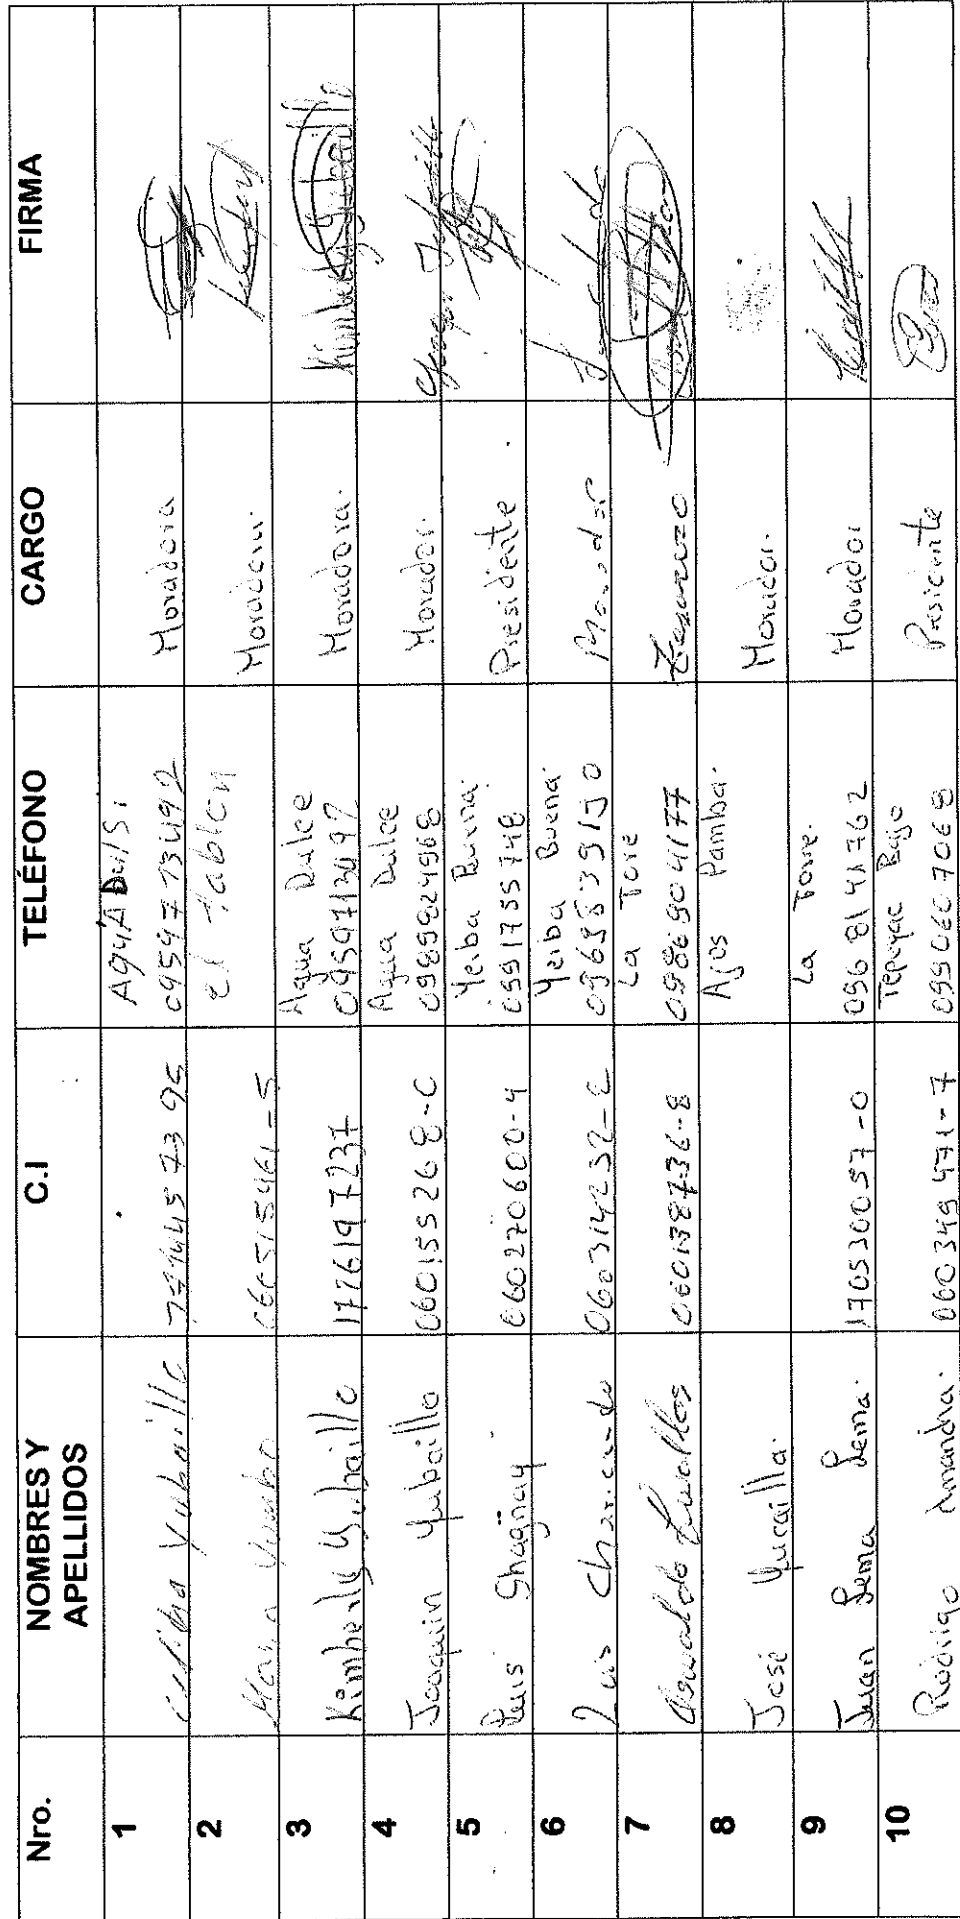 Nro. NOMBRES Y APELLIDOS C.I TELÉFONO CARGO FIRMA
1 Yubaillo AguA Dulsi 0959713492 Moradora
2 Maria El tablon Moradora.
3 Kimberly Yubaillo 1726197237 Agua Dulce 0959713492 Moradora. Kimberly Yubaillo
4 Joaquin Yubaillo 060155268-0 Agua Dulce 0989824968 Morador.
5 Luis Shagñay 060270600-4 Yerba Buena. 0991755748 Presidente.
6 Luis 060314232-2 Yerba Buena. Morador
7 Oswaldo Zuvallos 060138736-8 La Torre 0986904177
8 José Yucailla. Ajos Pamba. Morador.
9 Juan Lema Lema. 170530057-0 La Torre. 0968141762 Morador
10 Rodrigo Amancha. 060349471-7 Tepeyac Bajo 0990607068 Presidente